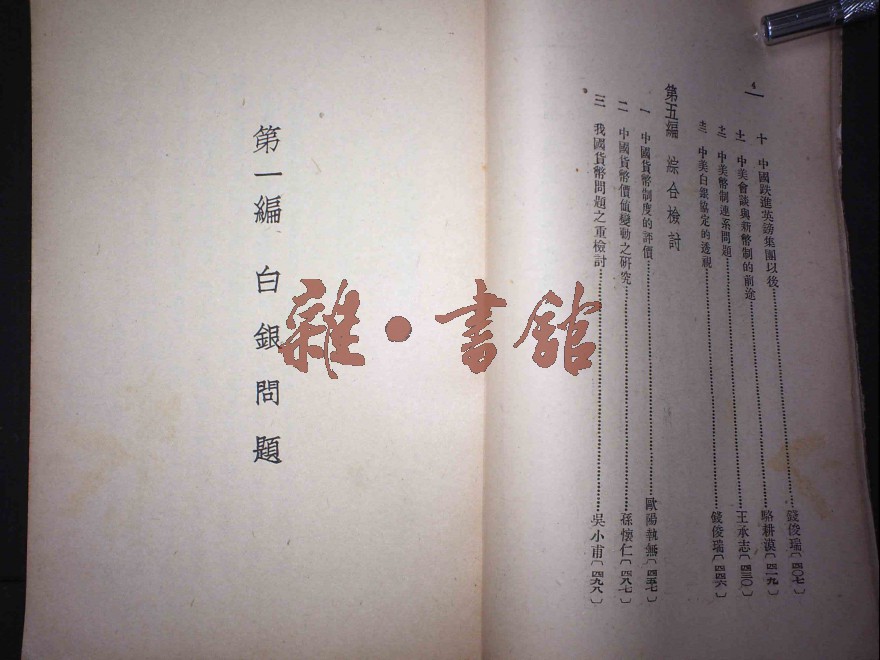 4
十 中國跌進英鎊集團以後……錢俊瑞〔四〇七〕
十一 中美會談與新幣制的前途……駱耕漠〔四一九〕
十二 中美幣制連系問題……王承志〔四三〇〕
十三 中美白銀協定的透視……錢俊瑞〔四四六〕
第五編 綜合檢討
一 中國貨幣制度的評價……歐陽執無〔四五七〕
二 中國貨幣價值變動之研究……孫懷仁〔四八七〕
三 我國貨幣問題之重檢討……吳小甫〔四九八〕
第一編 白銀問題
雜·書館